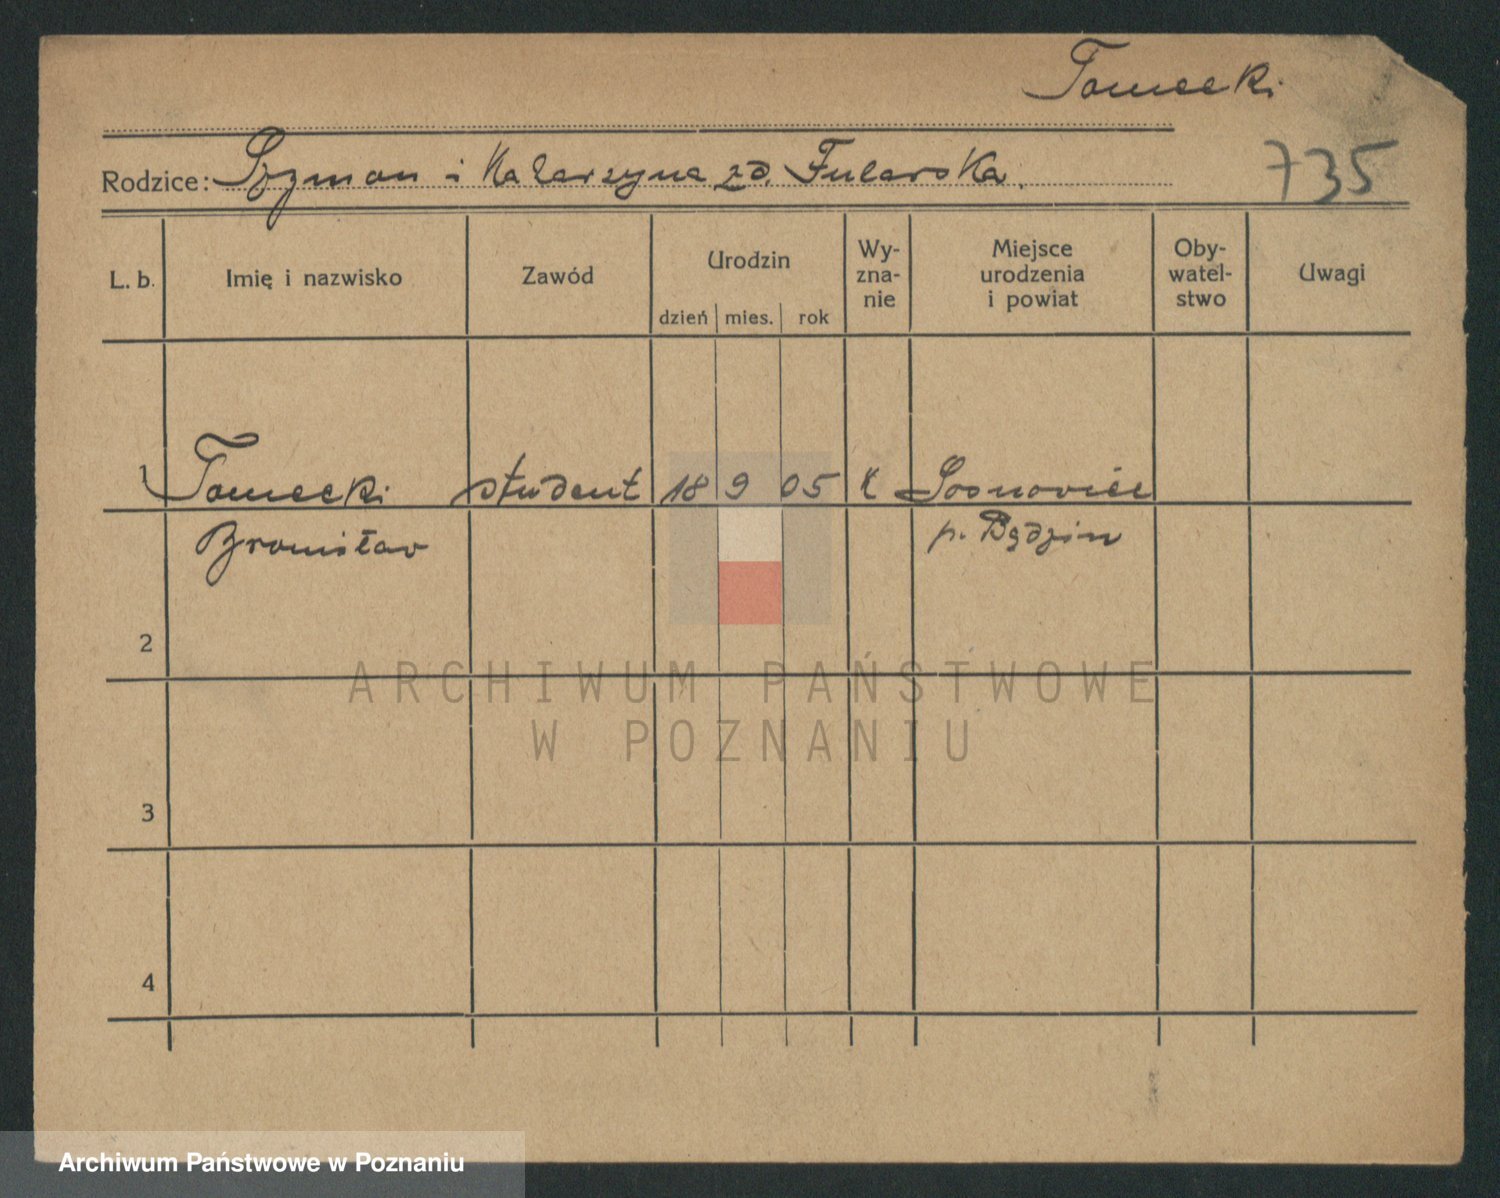 Tomecki
735
Rodzice: Szymon i Katarzyna zd. Fularska.
L. b. Imię i nazwisko Zawód Urodzin dzień mies. rok Wy-zna-nie Miejsce urodzenia i powiat Oby-watel-stwo Uwagi
1 Tomecki student 18 9 05 k Sosnowiec
Bronisław p. Będzin
2
ARCHIWUM PAŃSTWOWE
W POZNANIU
3
4
Archiwum Państwowe w Poznaniu